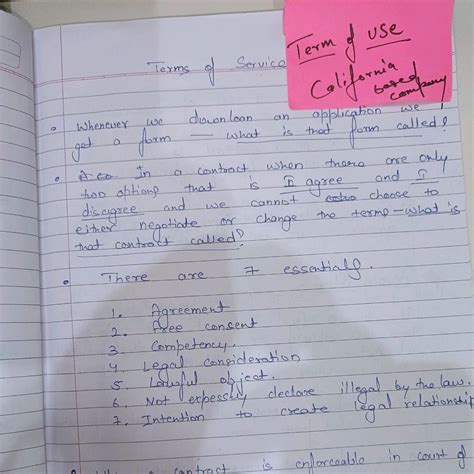 Term of use
California
based
company
Terms of Service
• Whenever we downloan an application we
get a form – what is that form called?
• In a contract when there are only
two options that is I agree and I
disagree and we cannot choose to
either negotiate or change the terms – what is
that contract called?
• There are 7 essentials.
1. Agreement
2. Free consent
3. Competency.
4. Legal consideration
5. Lawful object.
6. Not expessly declare illegal by the law.
7. Intention to create legal relationship
contract is enforceable in count of